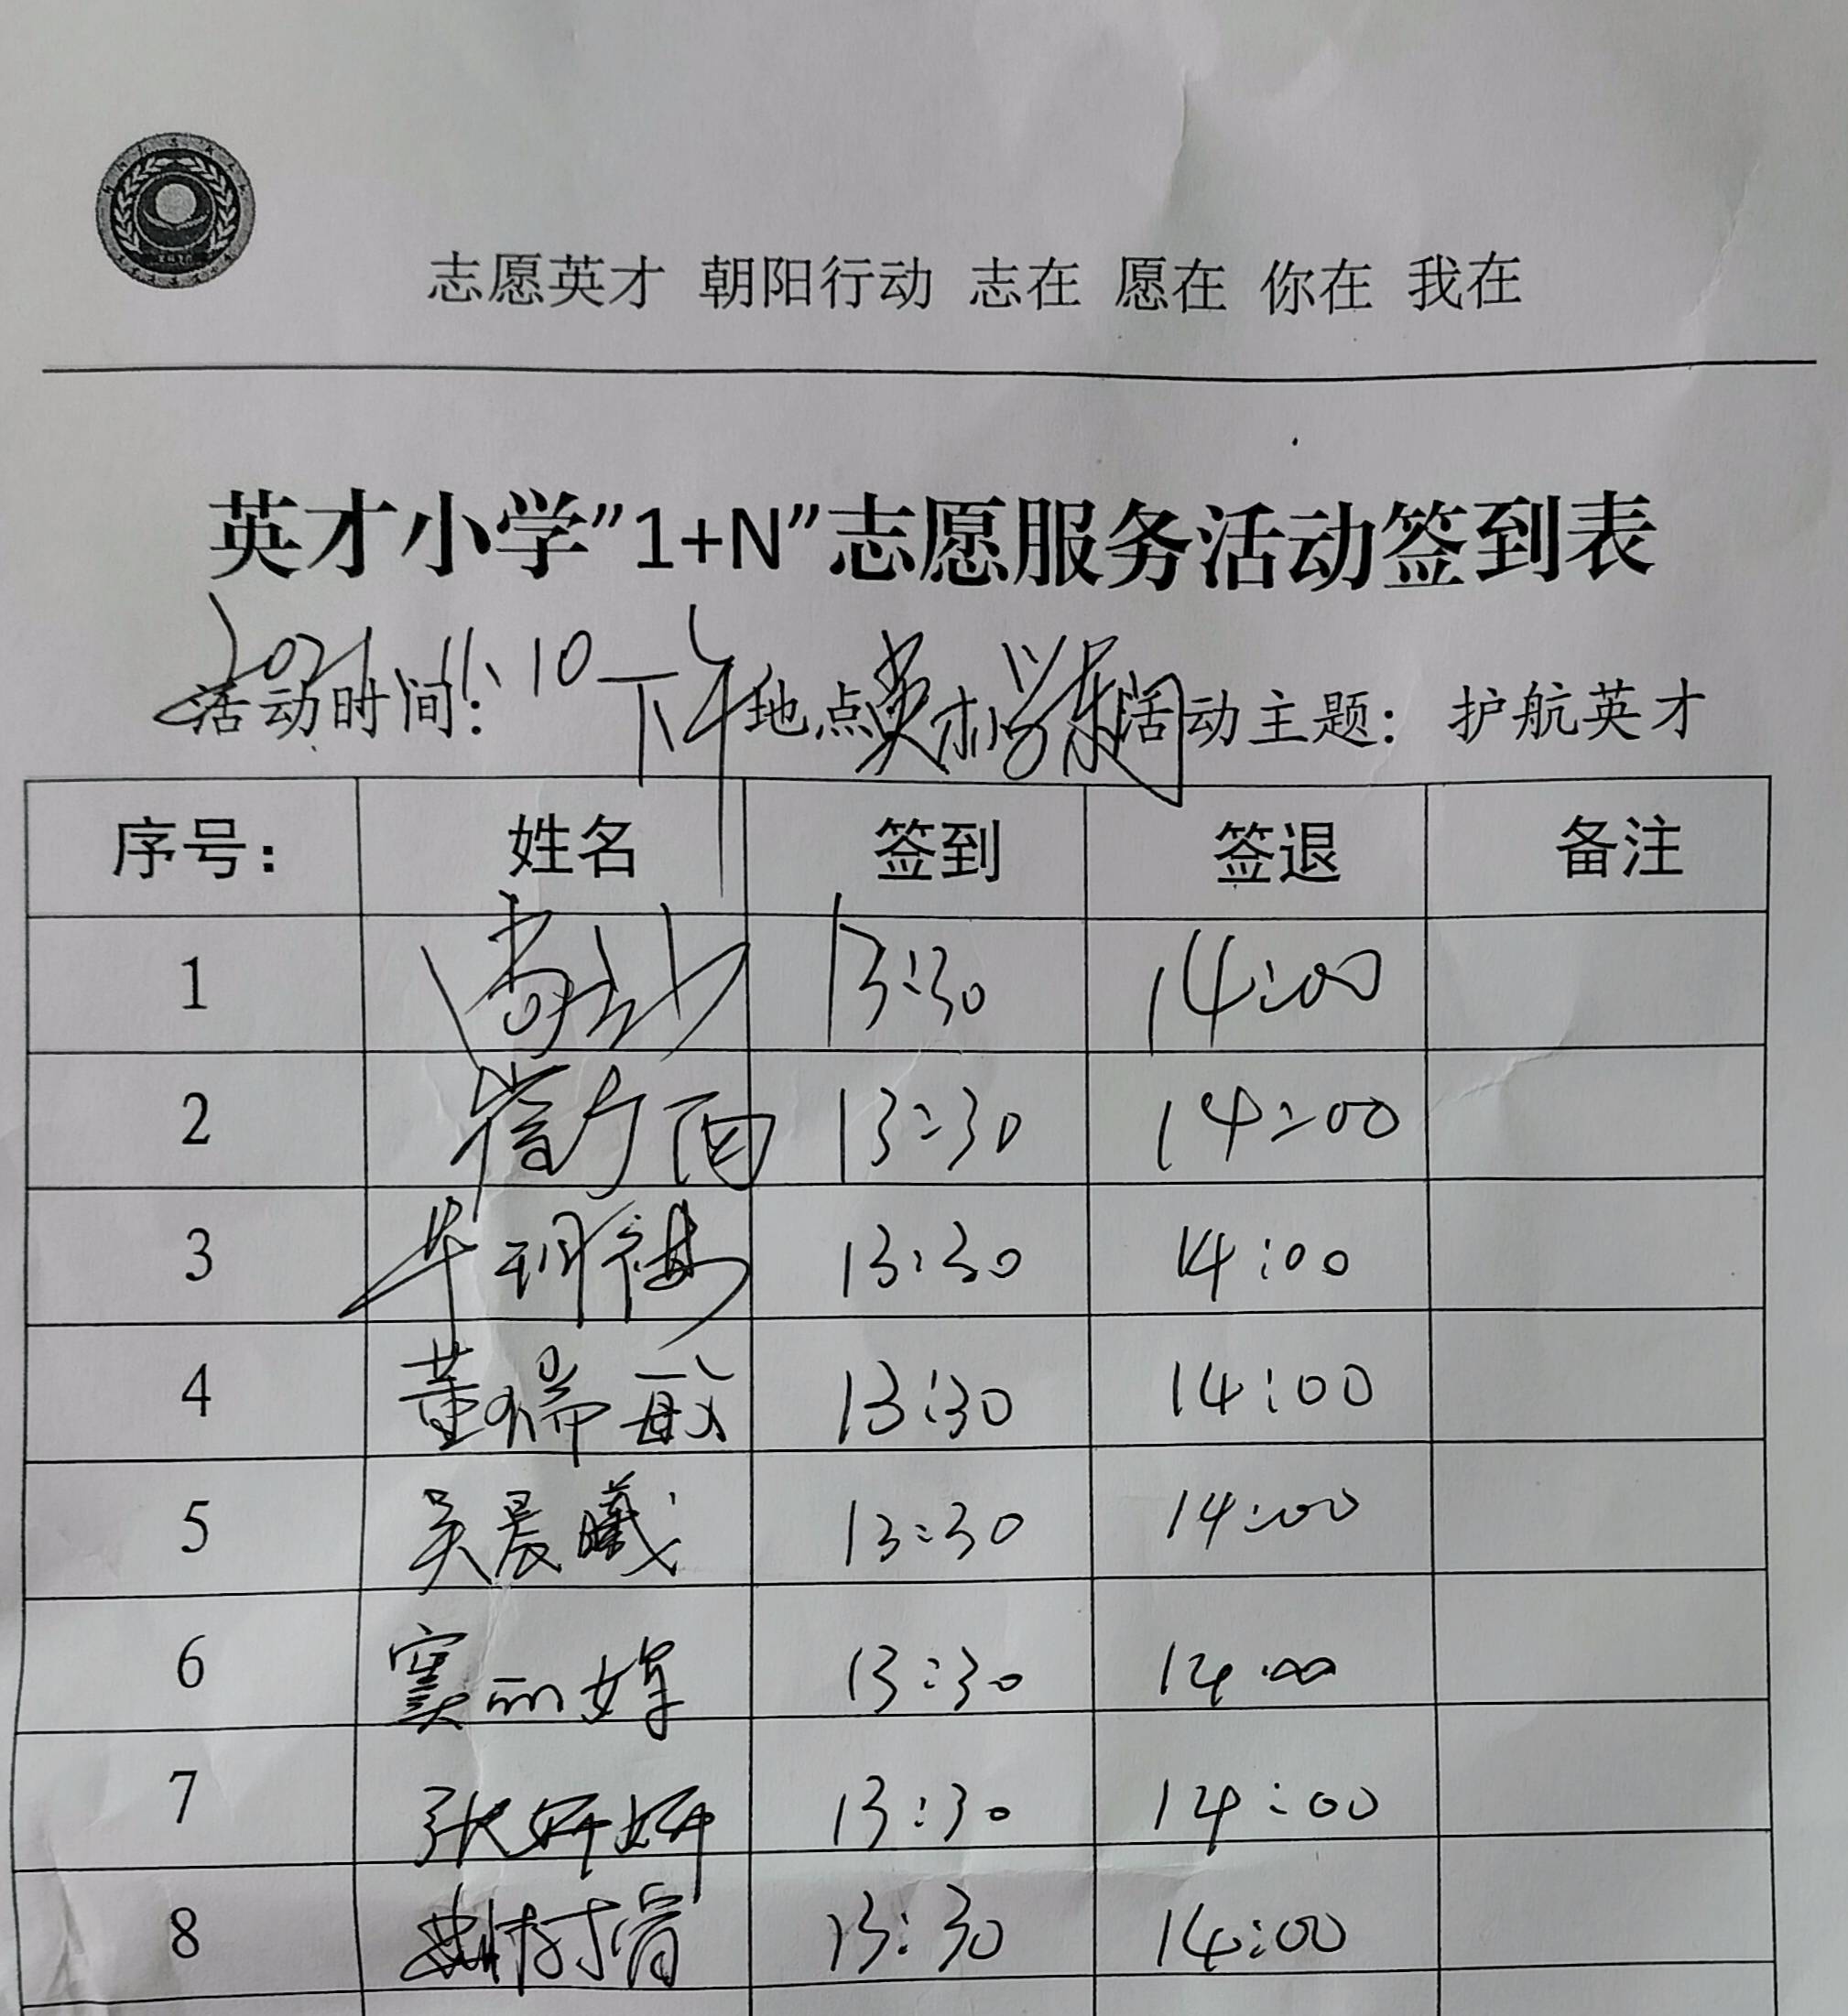 志愿英才 朝阳行动 志在 愿在 你在 我在
英才小学”1+N”志愿服务活动签到表
活动时间: 2021.11.10下午 地点英才小学东门 活动主题: 护航英才
序号: 姓名 签到 签退 备注
1 13:30 14:00
2 13:30 14:00
3 13:30 14:00
4 董瑞敏 13:30 14:00
5 吴晨曦 13:30 14:00
6 窦丽婷 13:30 14:00
7 张妍妍 13:30 14:00
8 13:30 14:00